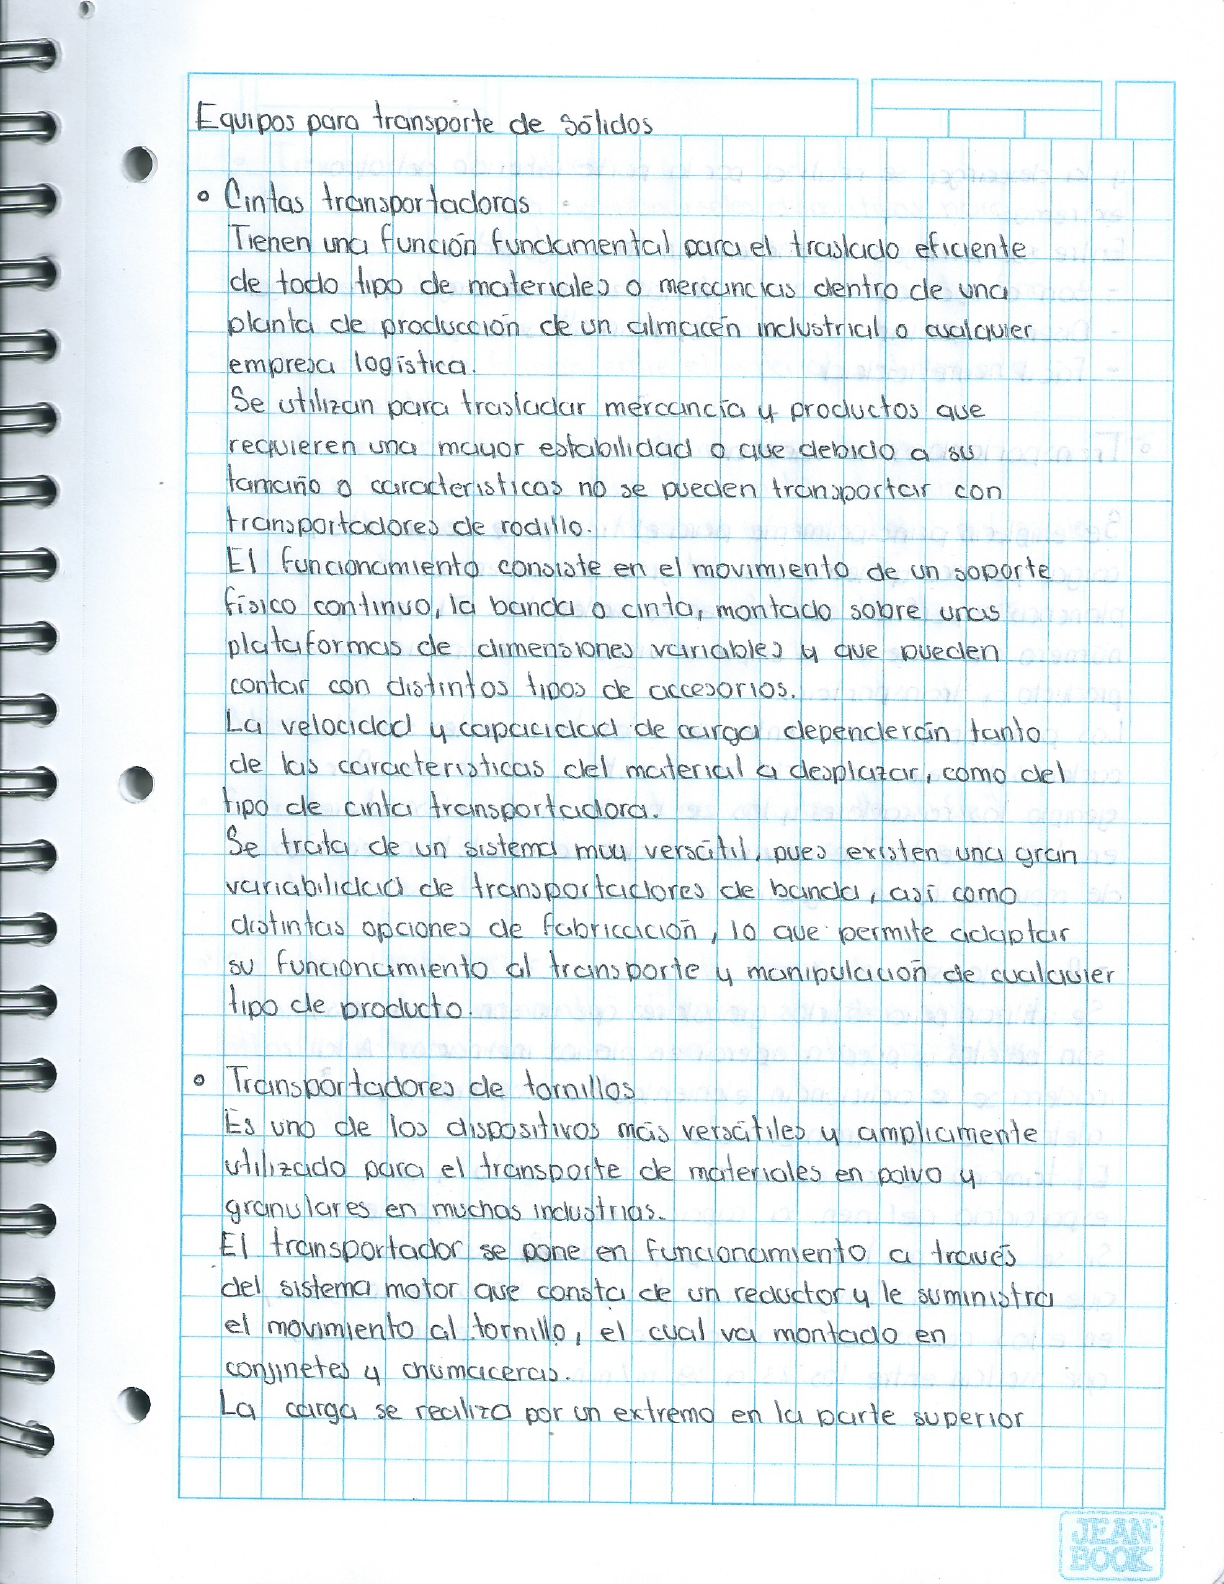 Equipos para transporte de sólidos
• Cintas transportadoras
Tienen una función fundamental para el traslado eficiente
de todo tipo de materiales o mercancias dentro de una
planta de producción de un almacén industrial o cualquier
empresa logística.
Se utilizan para trasladar mercancía y productos que
requieren una mayor estabilidad o que debido a su
tamaño o caracteristicas no se pueden transportar con
transportadores de rodillo.
El funcionamiento consiste en el movimiento de un soporte
físico continuo, la banda o cinta, montado sobre unas
plataformas de dimensiones variables y que pueden
contar con distintos tipos de accesorios.
La velocidad y capacidad de carga dependerán tanto
de las caracteristicas del material a desplazar, como del
tipo de cinta transportadora.
Se trata de un sistema muy versátil, pues existen una gran
variabilidad de transportadores de banda, así como
distintas opciones de fabricación, lo que permite adaptar
su funcionamiento al transporte y manipulación de cualquier
tipo de producto.
• Transportadores de tornillos
Es uno de los dispositivos más versátiles y ampliamente
utilizado para el transporte de materiales en polvo y
granulares en muchas industrias.
El transportador se pone en funcionamiento a través
del sistema motor que consta de un reductor y le suministra
el movimiento al tornillo, el cual va montado en
conjinetes y chumaceras.
La carga se realiza por un extremo en la parte superior
JEAN BOOK